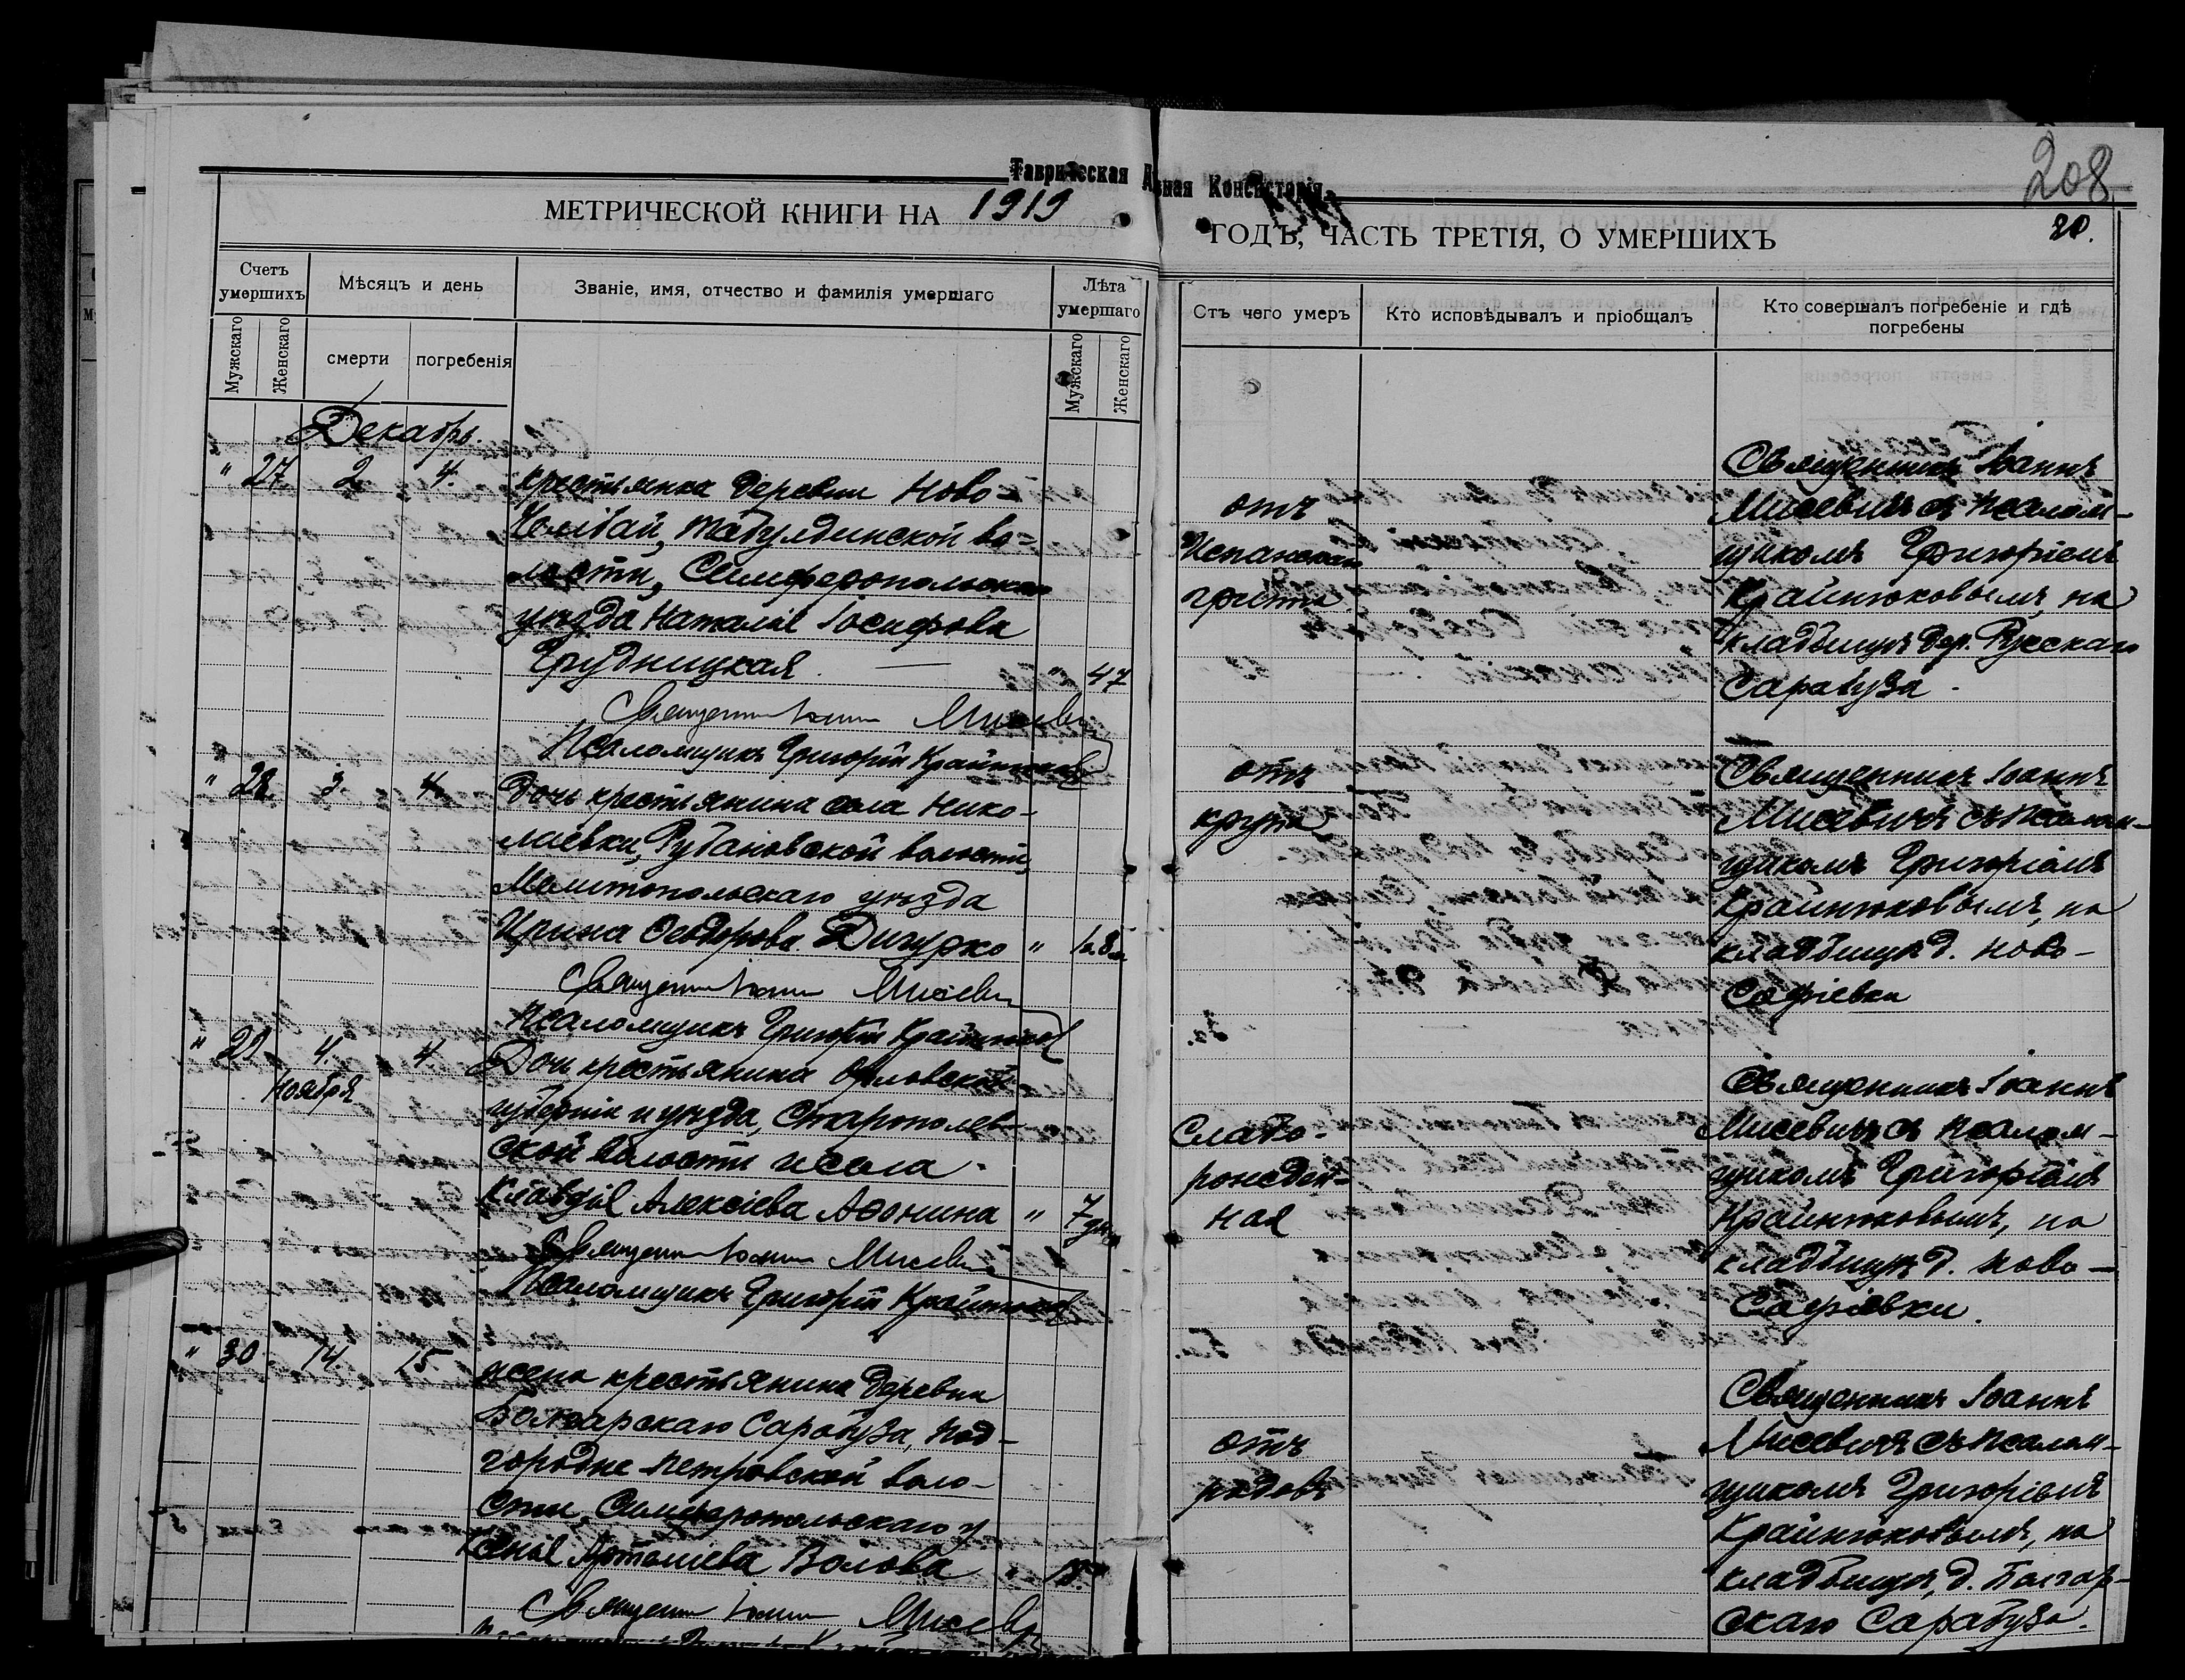 Таврическая Д вная Консисторія
208
МЕТРИЧЕСКОЙ КНИГИ НА 1919 ГОДЪ, ЧАСТЬ ТРЕТІЯ, О УМЕРШИХЪ
20.
Счетъ умершихъ
Мужскаго
Женскаго
Мѣсяцъ и день
смерти
погребенія
Званіе, имя, отчество и фамилія умершаго
Лѣта умершаго
Мужскаго
Женскаго
Отъ чего умеръ
Кто исповѣдывалъ и пріобщалъ
Кто совершалъ погребеніе и гдѣ
погребены
Декабрь.
" 27 2 4.
крестьянка деревни Ново-
Табулдинской во=
лости, Симферопольскаго
уѣзда Наталія Іосифова
Грудницкая. " 47
Священникъ Іоаннъ Мисевичъ
Псаломщикъ Григорій Крайнюковъ
отъ
Испанской
гриппа
Священникъ Іоаннъ
Мисевичъ съ псалом-
щикомъ Григоріемъ
Крайнюковымъ, на
кладбищѣ дер. Русскаго
Сарабуза.
" 28 3. 4.
Дочь крестьянина села Нико-
лаевки, Рубановской волости,
Мелитопольскаго уѣзда
Ирина Ѳеодорова Дигурко " 1г. 8м.
Священникъ Іоаннъ Мисевичъ
Псаломщикъ Григорій Крайнюковъ
отъ
крупа
Священникъ Іоаннъ
Мисевичъ съ псалом-
щикомъ Григоріемъ
Крайнюковымъ, на
кладбищѣ д. Ново-
Софіевки
" 29 4. 4.
Ноября
Дочь крестьянина Орловской
губерніи и уѣзда,
ской волости и села
Клавдія Алексіева Аѳонина " 7 дн.
Священникъ Іоаннъ Мисевичъ
Псаломщикъ Григорій Крайнюковъ
Слабо-
рожден-
ная
Священникъ Іоаннъ
Мисевичъ съ псалом-
щикомъ Григоріемъ
Крайнюковымъ, на
кладбищѣ д. Ново-
Софіевки.
" 30 14. 15
жена крестьянина деревни
Болгарскаго Сарабуза, Под-
городне Петровской воло-
сти, Симферопольскаго у
Ксенія Волова "
Священникъ Іоаннъ Мисевичъ
отъ
родовъ
Священникъ Іоаннъ
Мисевичъ съ псалом-
щикомъ Григоріемъ
Крайнюковымъ, на
кладбищѣ, д. Болгар-
скаго Сарабуза.